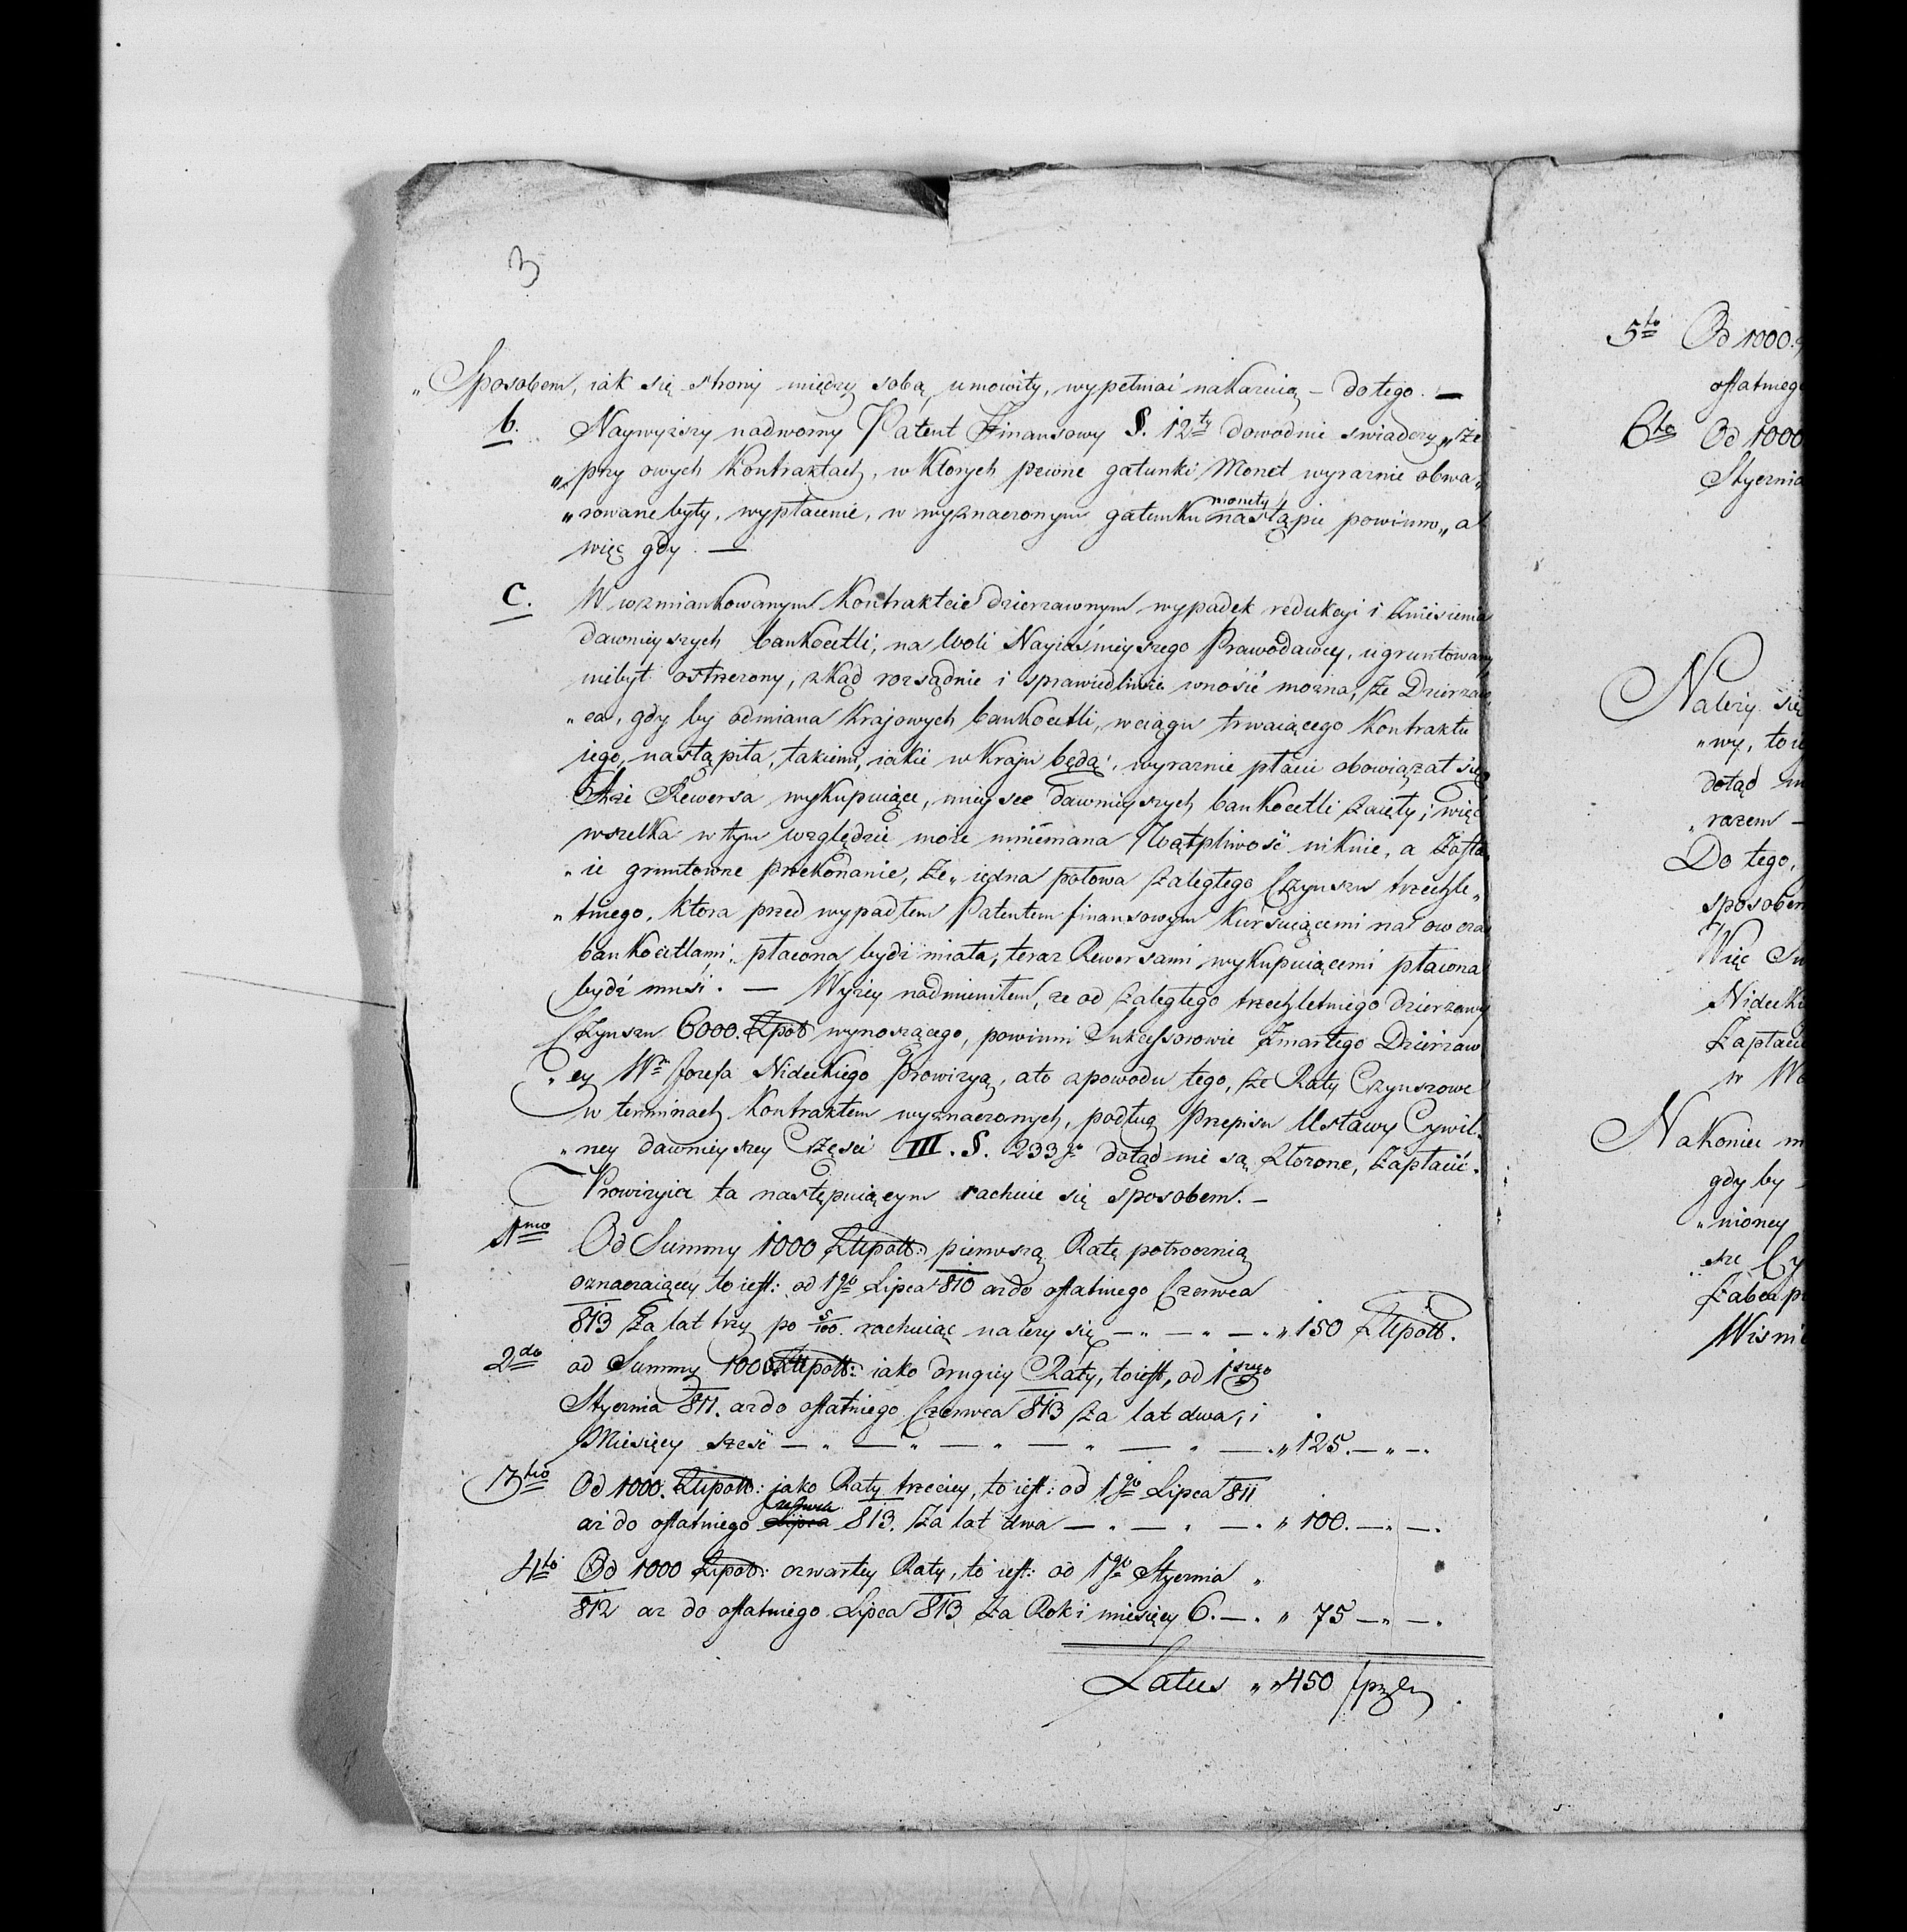 3
„Sposobem, iak się strony między sobą umowiły, wypełniać nakazuią – do tego. —
b. Naywyższy nadworny Patent Finansowy §. 12ty dowodnie swiadczy „że
„przy owych Kontraktach, w ktorych pewne gatunki Monet wyraznie obwa„
„rowane były, wypłacenie, w wyznaczonym gatunku monety nastąpić powinno„ a
więc gdy. —
C. W wzmiankowanym Kontrakcie dzierzawnym wypadek redukcyi i Zniesienia
dawnieyszych bankocetli, na Woli Nayiaśnieyszego Prawodawcy, ugruntowany
niebył ostrzeżony, zkąd rozsądnie i sprawiedliwie wnosić mozna, że Dzierzaw
„ca, gdy by odmiana Krajowych bankocetli, w ciągu trwaiącego Kontraktu
iego, nastąpiła, takiemi, iakie w Kraju będą, wyraznie płacić obowiązał się
Rewersa wykupuiące, mieysce dawnieyszych bankocetli zaięły; więc
wszelka w tym względzie może mniemana Wątpliwość niknie, a Zosta
„ie gruntowne przekonanie, że „iedna połowa zaległego Czynszu trzechle„
„tniego, ktora przed wypadłem Patentem finansowym kursuiącemi na ow czas
bankocetlami, płacona bydź miała, teraz Rewersami wykupuiącemi płacona
bydź musi. — Wyżey nadmieniłem, ze od zaległego trzechletniego dzierzawy
Czynszu 6000. Złpol wynoszącego, powinni Sukcessorowie Zmarłego Dzierzaw
„cy Wo Jozefa Nideckiego Prowizyą, a to z powodu tego, że Raty Czynszowe
w terminach Kontraktem wyznaczonych, podług Przepisu Ustawy Cywil„
„ney dawnieyszey Częsci III. §. 233go dotąd nie są złożone, zapłacić.
Prowizyia ta następuiącym rachuie się sposobem. –
1mo Od Summy 1000 Złtpoll: pierwszą Ratę potroczną
oznaczaiącey to iest: od 1go Lipca 810 az do ostatniego Czerwca
813 Za lat trzy po 5/100. rachuiąc nalezy się — „ — „ — „ „ 150 Złtpoll.
2do od Summy 1000 Złtpoll: iako drugiey Raty, to iest, od 1szego
Stycznia 811. az do ostatniego Czerwca 813 Za lat dwa, i
Miesięcy szesć — „ — „ — „ — „ — „ — „ 125. — „ —.
3tio Od 1000. Złtpoll: jako Raty trzeciey, to iest: od 1go Lipca 811
aż do ostatniego Lipca Czerwca 813. Za lat dwa — . — „ — . „ 100. — „ —.
4to Od 1000 Złtpoll: czwartey Raty, to iest: od 1go Stycznia „
812 az do ostatniego Lipca 813 Za Rok i miesięcy 6. — . „ 75 — „ —.
Latus „ „ 450
5to Od 1000.
ostatnieg
6to Od 1000
Stycznia
Nalezy się
„wy, to ie
dotąd
„razem –
Do tego,
sposobem
Więc
Nidecki
zapłaci
w
Nakoniec
gdy by
„nioney
„sze